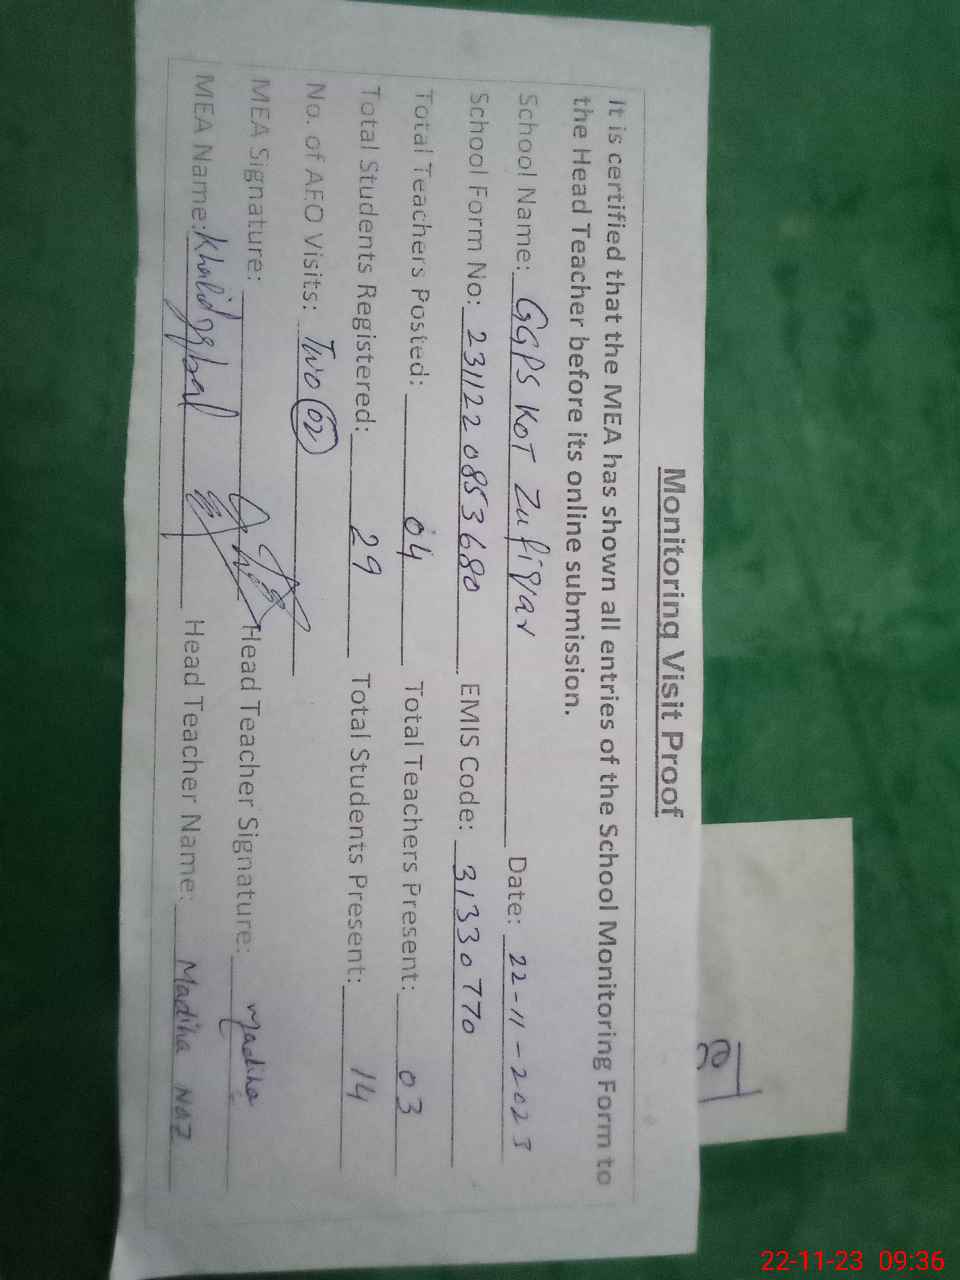 Monitoring Visit Proof
It is certified that the MEA has shown all entries of the School Monitoring Form to
the Head Teacher before its online submission.
School Name: GGPS KOT Zufiqar Date: 22-11-2023
School Form No: 231122085 3680 EMIS Code: 31330770
Total Teachers Posted: 04 Total Teachers Present: 03
Total Students Registered: 29 Total Students Present: 14
No. of AEO Visits: Two 02
MEA Signature: Head Teacher Signature: Madiha
MEA Name: Khalid Iqbal Head Teacher Name: Madiha Naz
22-11-23 09:36